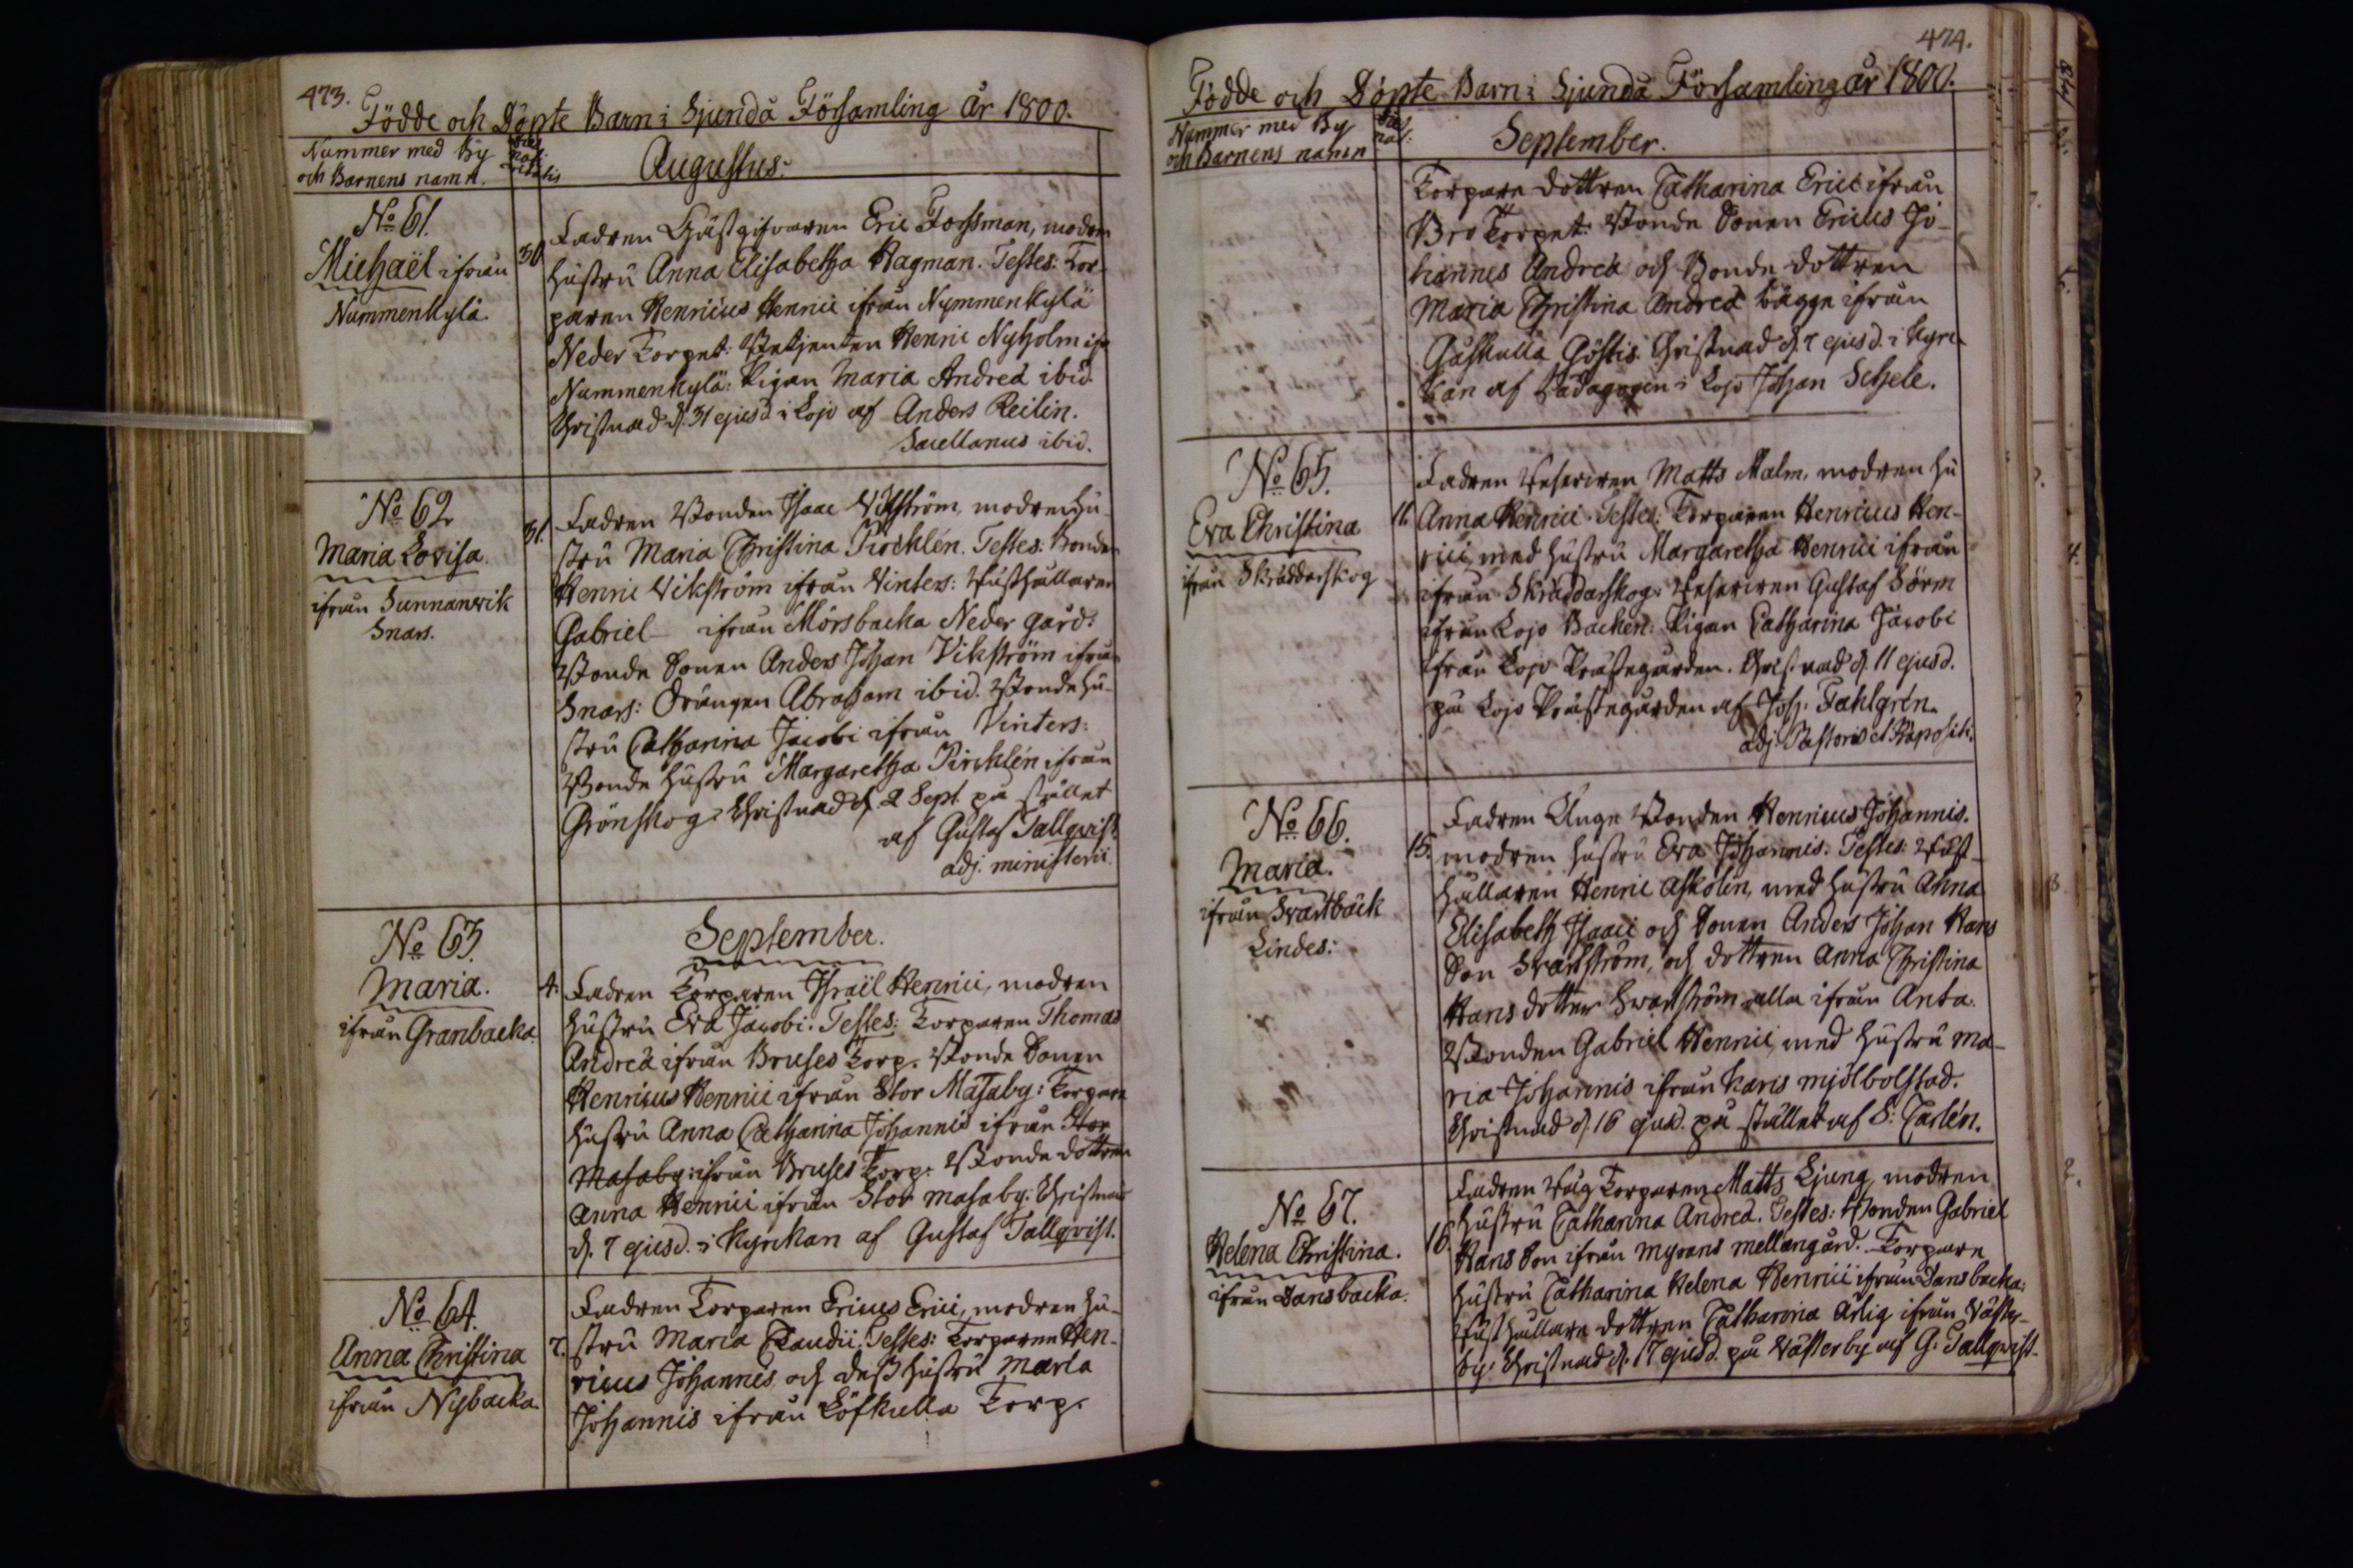 473.
Födde och Döpte Barn i Sjundå Församling År 1800.
Nummer med By
och Barnens namn.
Augustus.
No 61.
Michaël ifrån
Nummenkylä.
30.
Fadren Gästgifvaren Eric Forssman, modren
hustru Anna Elisabetha Hagman. Testes: Tor-
paren Henricus Henrici ifrån Nymmenkylä
Neder Torpet: Henric Nyholm
Nummenkylä: Pigan Maria Andreæ ibid.
Christnad d. 31 ejusd i Lojo af Anders Reilin.
Sacellanus ibid.
No 62
Maria Lovisa.
ifrån Sunnanvik
Snars.
31.
Fadren Bonden Isaac Vikström, modren hu-
stru Maria Christina Pircklén. Testes: Bonden
Henric Vikström ifrån Vinters: Rusthållaren
Gabriel — ifrån Mörsbacka Neder gård:
Bonde Sonen Anders Johan Vikström ifrån
Snars: Drängen Abraham ibid. Bonde hu-
stru Catharina Jacobi ifrån Vinters:
Bonde hustru Margaretha Pircklén ifrån
Grönskog. Christnad d. 2 Sept. på stället
af Gustaf Tallqvist
adj. ministerii.
No 63.
Maria.
ifrån Granbacka.
September.
4.
Fadren Torparen Israël Henrici, modren
hustru Eva Jacobi. Testes: Torparen Thomas
Andreæ ifrån Bruses Torp. Bonde Sonen
Henricus Henrici ifrån Stor Masaby: Torpare
hustru Anna Catharina Johannis ifrån Stor
Masaby: ifrån Bruses Torp. Bonde dottren
Anna Henrici ifrån Stor masaby. Christnad
d. 7 ejusd. i Kyrckan af Gustaf Tallqvist.
No 64.
Anna Christina
ifrån Nybacka.
7.
Fadren Torparen Ericus Erici, modren hu-
stru Maria Claudii. Testes: Torparen Hen-
ricus Johannis och dess hustru Maria
Johannis ifrån Löfkulla Torp.
474.
Födde och Döpte Barn i Sjundå Församling år 1800.
Nummer med By
och Barnens namn
September.
Torpare dottren Catharina Erici ifrån
Bro Torpet: Bonde Sonen Ericus Jo-
hannes Andreæ och Bonde dottren
Maria Christina Andreæ bägge ifrån
Gåskulla Göstis. Christnad d. 7 ejusd. i Kyrc-
kan af Pædagogen i Lojo Johan Schele.
No 65.
Eva Christina
ifrån Skräddarskog
11.
Fadren Matts Malm, modren hu
Anna Henrici. Testes: Torparen Henricus Hen-
rici, med hustru Margaretha Henrici ifrån
ifrån Skräddarskog: Gustaf Sörm
ifrån Lojo Backen: Pigan Catharina Jacobi
ifrån Lojo Prästegården. Christnad d. 11 ejusd.
på Lojo Prästegården af Joh: Fahlgrén.
adj. Pastoris et Præpositi.
No 66.
Maria.
ifrån Svartbäck
Lindes:
15.
Fadren Unge Bonden Henricus Johannis.
modren hustru Eva Johannis. Testes: Rust-
hållaren Henric Askolin, med hustru Anna
Elisabeth Isaaci och Sonen Anders Johan Hans
Son Svanström, och dottren Anna Christina
Hans dotter Svanström alla ifrån Anta.
Bonden Gabriel Henrici, med hustru Ma-
ria Johannis ifrån Karis mjölbolstad.
Christnad d. 16 ejusd. på stället af S: Carlén.
No 67.
Helena Christina.
ifrån Dansbacka.
16.
Fadren Torparen Matts Ljung, modren
hustru Catharina Andreæ. Testes: Bonden Gabriel
Hans Son ifrån Myrans mellangård. Torpare
hustru Catharina Helena Henrici ifrån Dansbacka:
Rusthållare dottren Catharina Ärlig ifrån Väster-
by: Christnad d. 17 ejusd. på Västerby af G: Tallqvist.